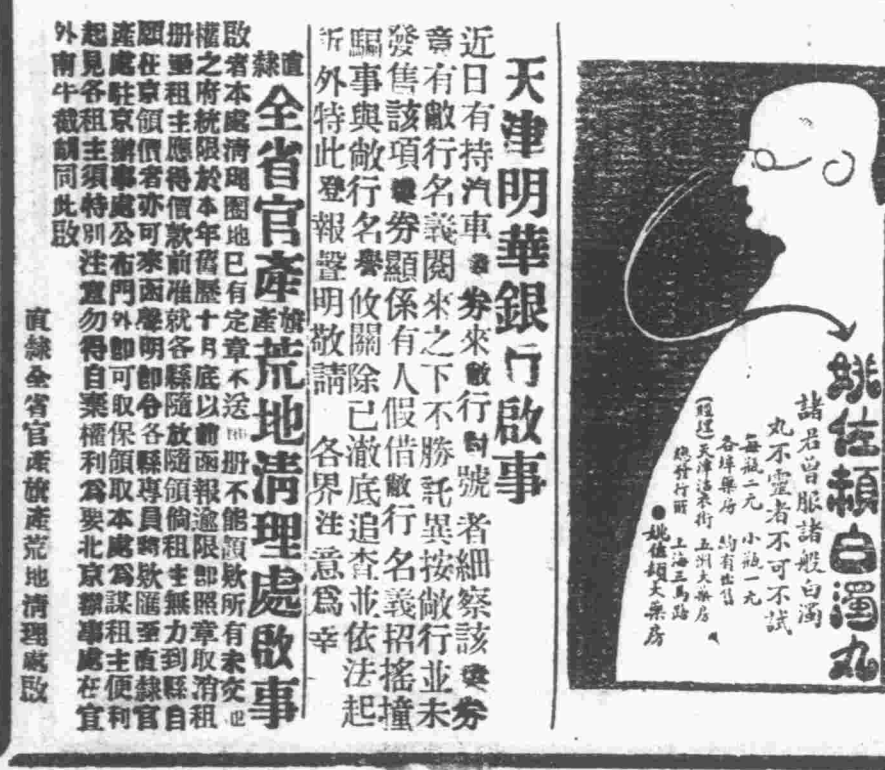 姚佐頓白濁丸
諸君曾服諸般白濁
丸不靈者不可不試
每瓶二元　小瓶一元
各埠藥房　均有出售
天津估衣街　五洲大藥房
總發行所　上海三馬路
●姚佐頓大藥房
天津明華銀行啟事
近日有持汽車獎券來敝行對號者細察該獎券
章有敝行名義閱來之下不勝詫異按敝行並未
發售該項獎券顯係有人假借敝行名義招搖撞
騙事與敝行名譽攸關除已澈底追查並依法起
訴外特此登報聲明敬請　各界注意爲幸
直隸全省官產旗產荒地清理處啟事
啟者本處清理圈地已有定章不送冊不能領欵所有未交
權之府統限於本年舊歷十月底以前函報逾限卽照章取消租
册至租主應得價款前准就各縣隨放隨領倘租主無力到縣自
願在京領價者亦可來函聲明卽令各縣專員將欵匯至直隸官
產處駐京辦事處公布門外卽可取保領取本處爲謀租主便利
起見各租主須特別注意勿得自棄權利爲要北京辦事處在宣
外南半截胡同此啟
直隸全省官產旗產荒地清理處啟